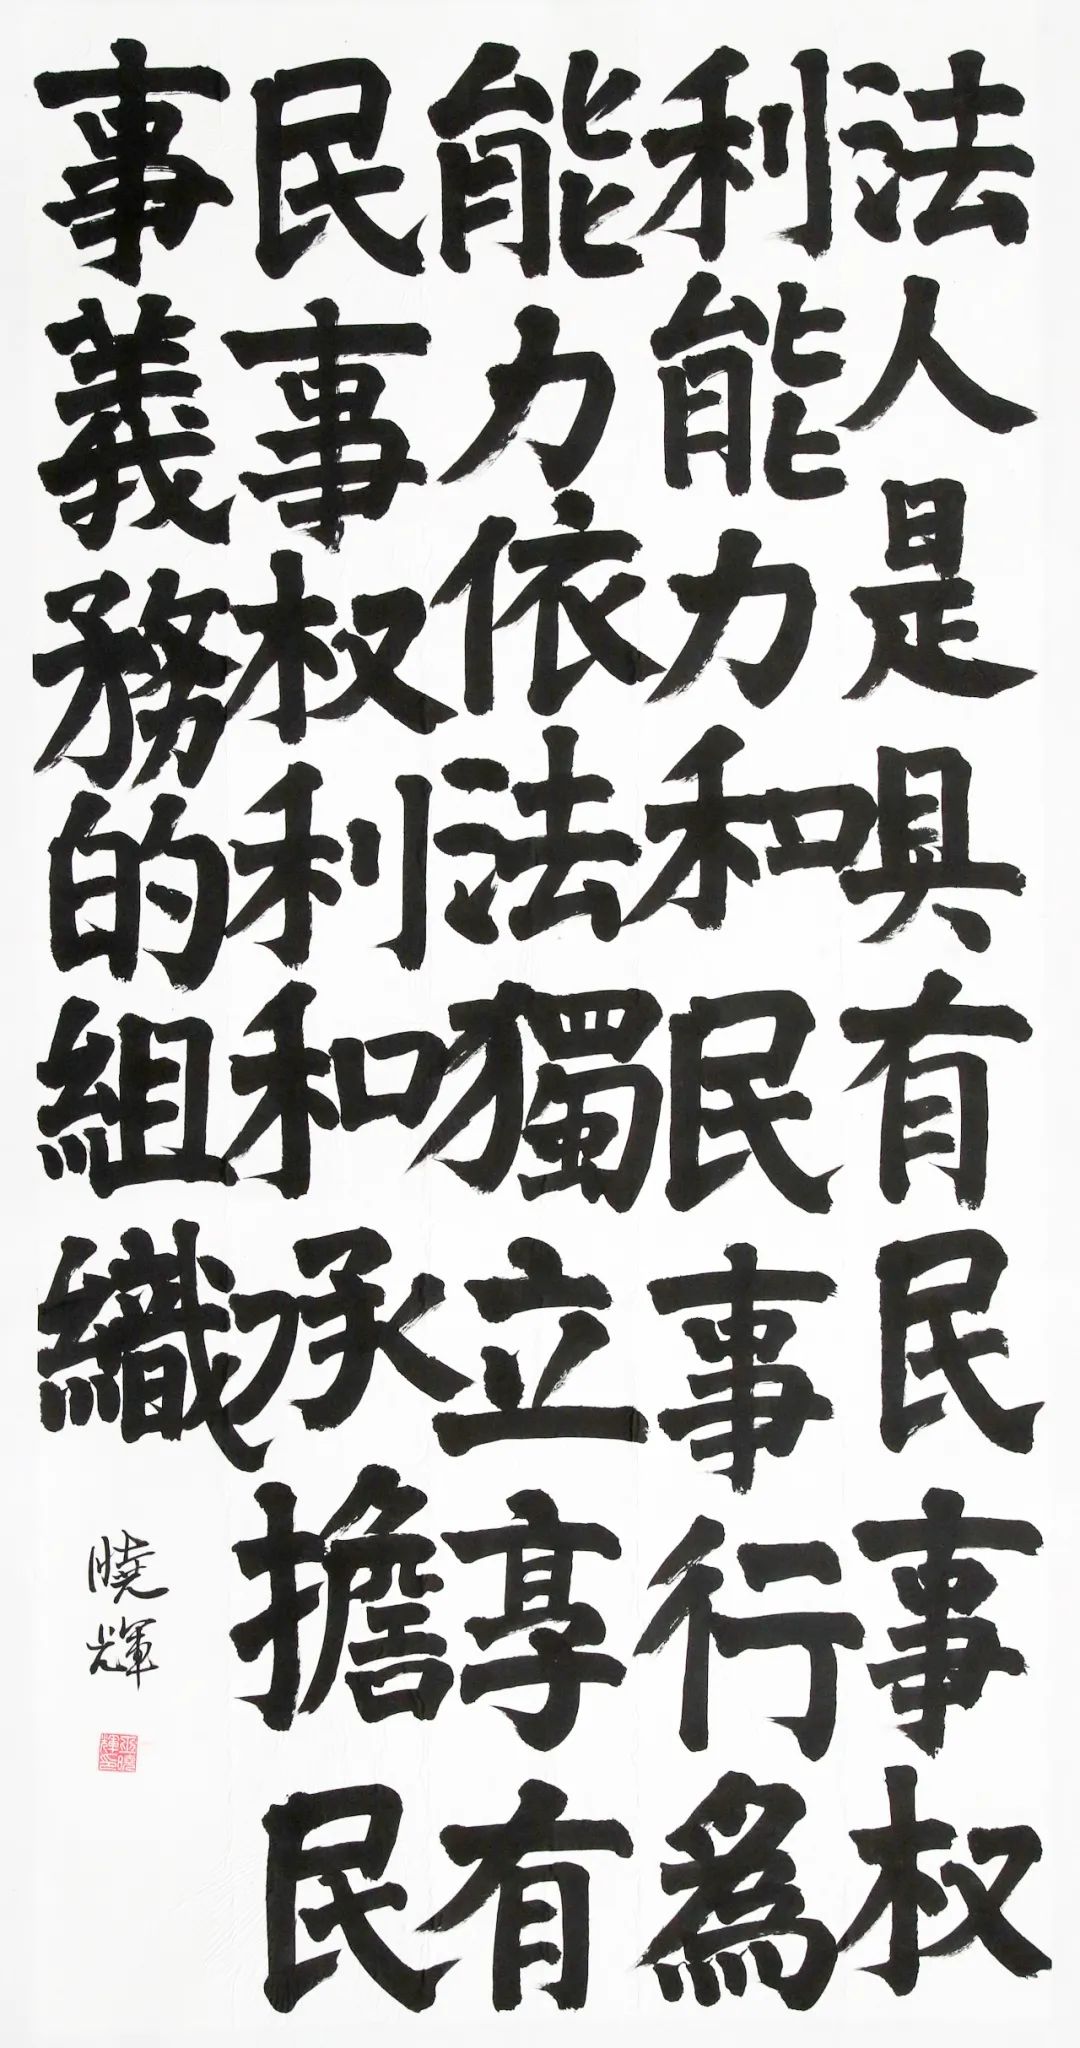 法人是具有民事权
利能力和民事行為
能力依法獨立享有
民事权利和承擔民
事義務的組織
曉輝